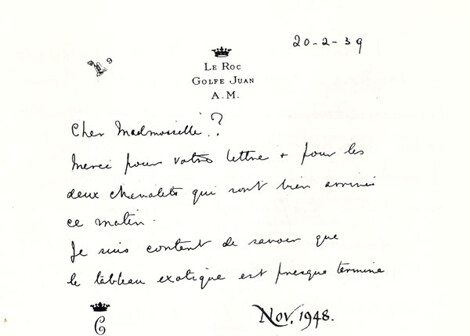 20-2-39
LE ROC
GOLFE JUAN
A.M.
Cher Madmoiselle?
Merci pour votre lettre + pour les
deux chevalets qui sont bien arrivés
ce matin.
Je suis content de savoir que
le tableau exotique est presque terminé
C
Nov. 1948.